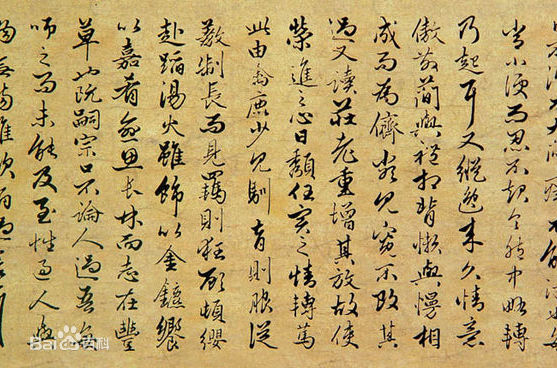 常小便而忍不起令胞中略轉
乃起耳又縱逸來久情意
傲散簡與禮相背懶與慢相
成而為儕類見寬不攻其
過又讀莊老重增其放故使
榮進之心日頹任實之情轉篤
此由禽鹿少見馴育則服從
教制長而見羈則狂顧頓纓
赴蹈湯火雖飾以金鑣饗
以嘉肴愈思長林而志在豐
草也阮嗣宗口不論人過吾每
師之而未能及至性過人與
物無傷唯飲酒過
Bai百科